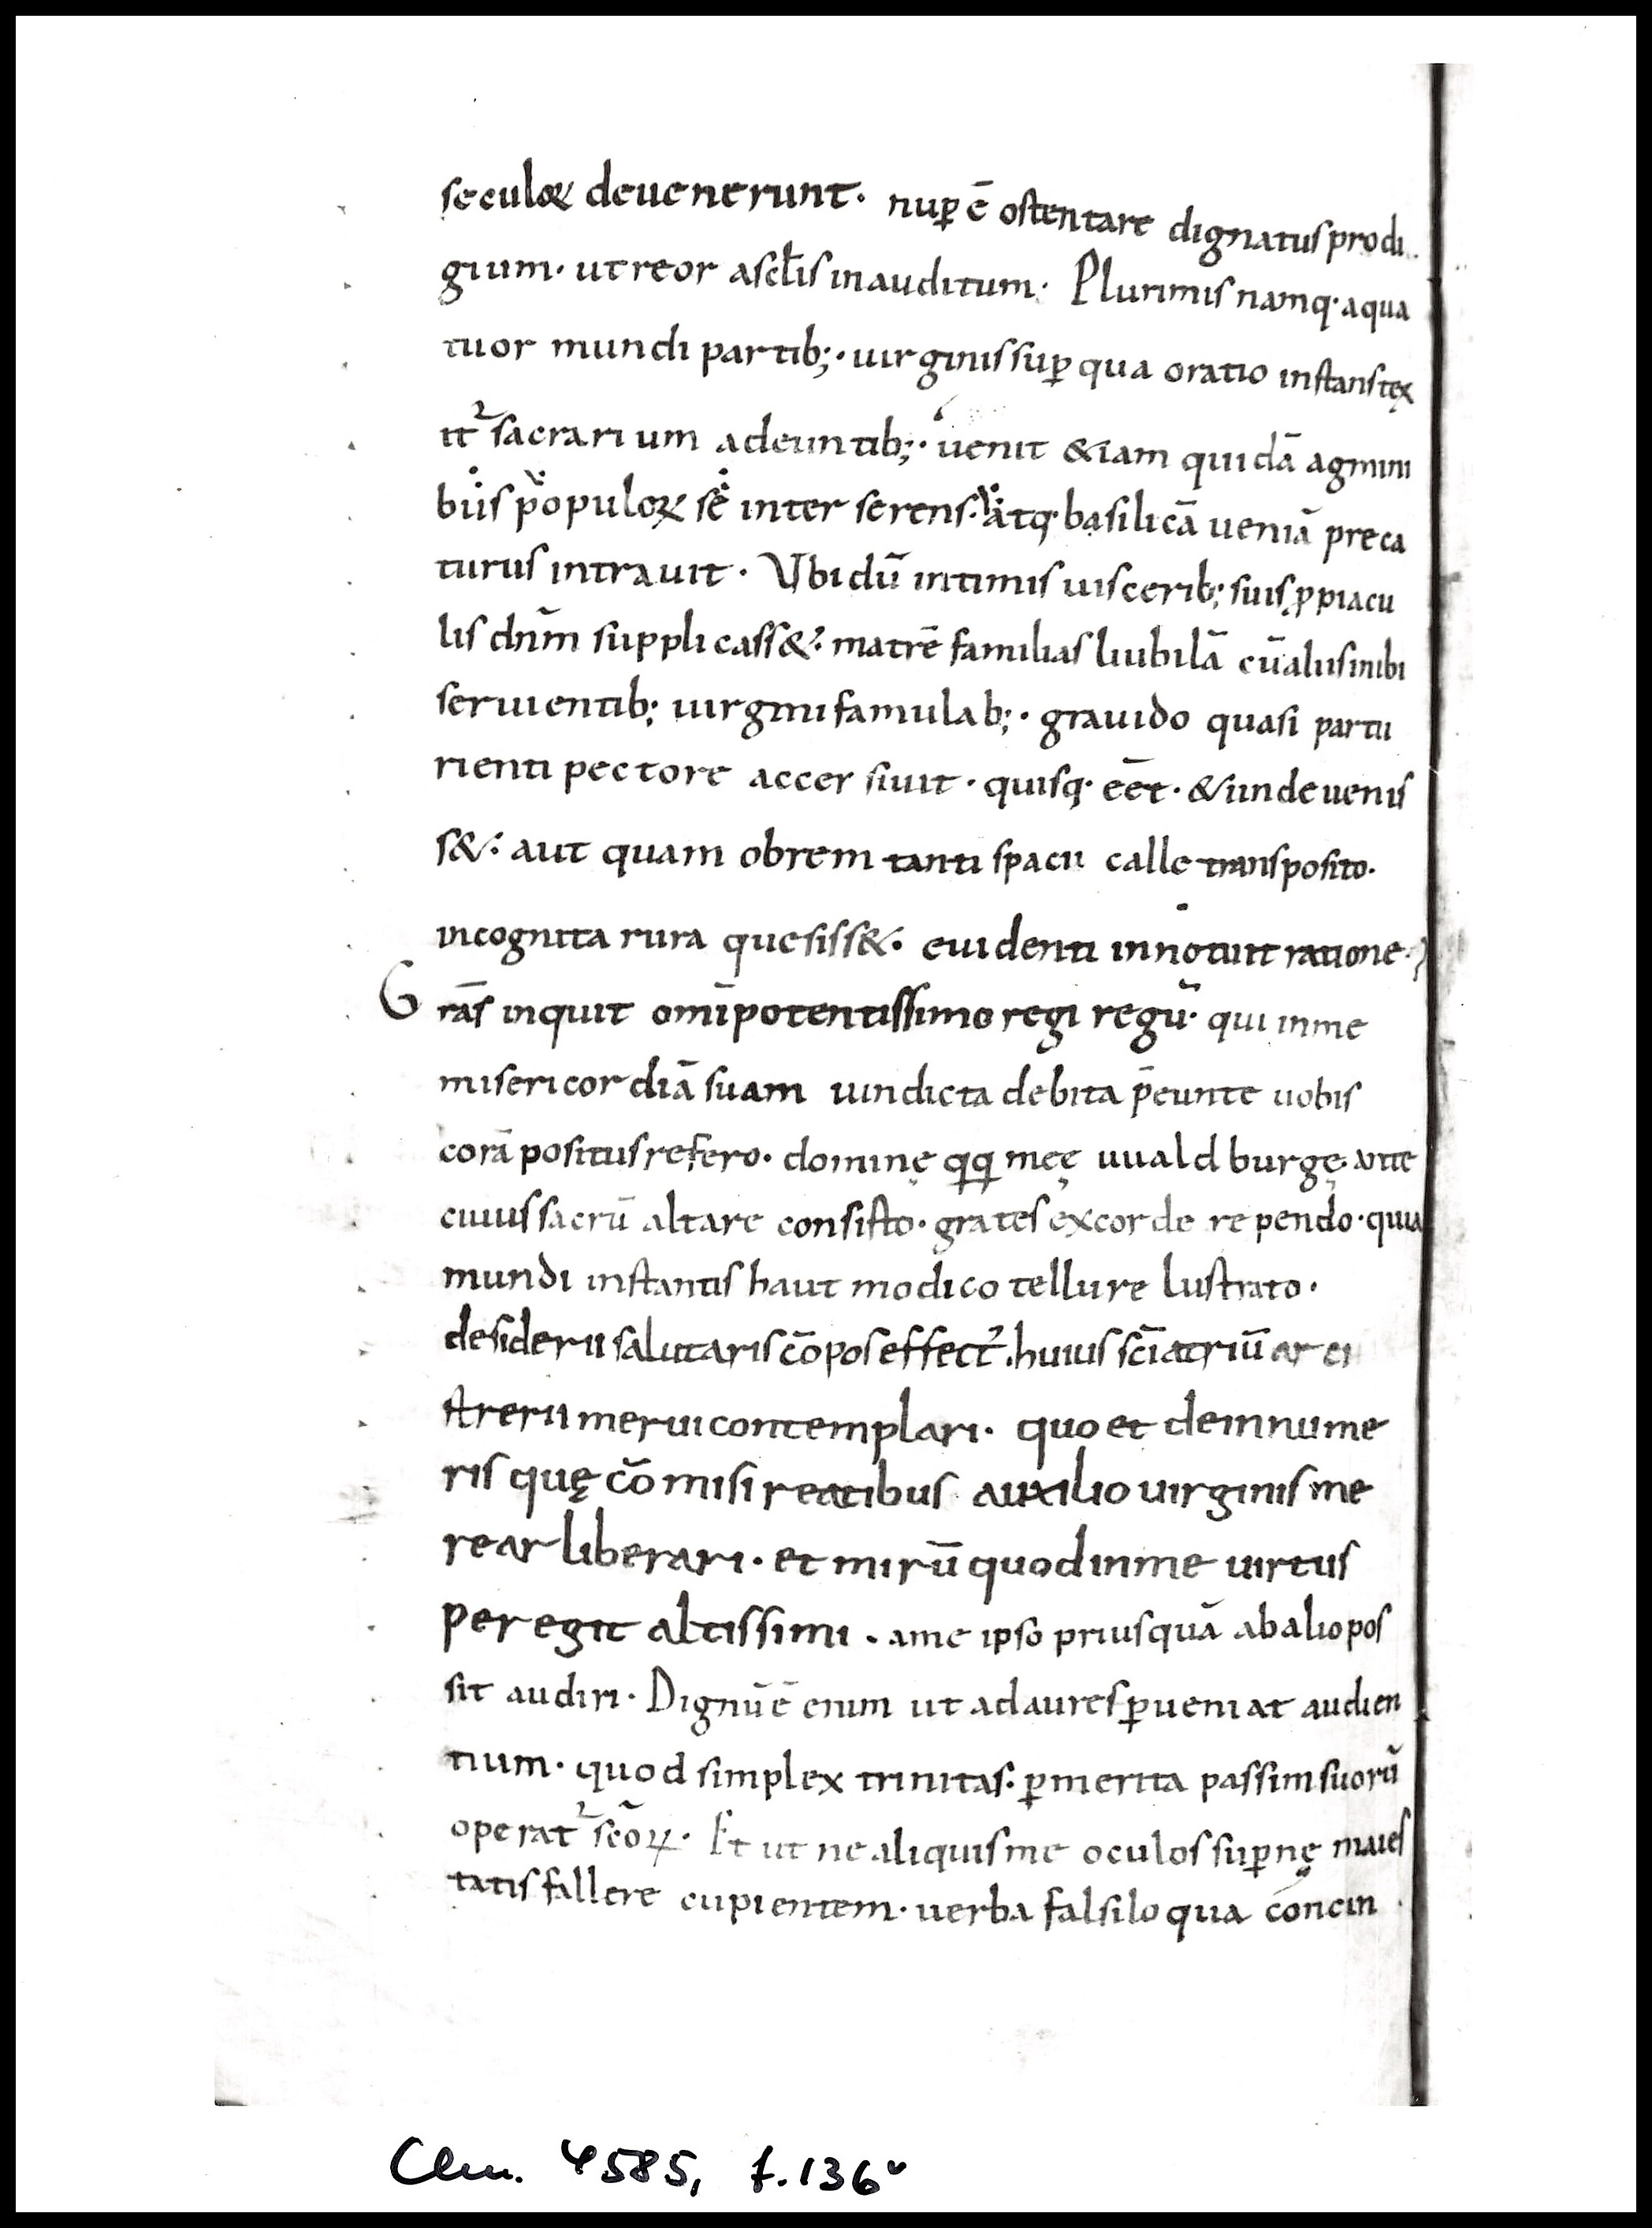 seculoꝝ deuenerunt· nuꝑ ē ostentare dignatus prodi
gium· ut reor a sclis inauditum· Plurimis namq· a qua
tuor mundi partib;· uirginis suꝑ qua oratio instans tex
it᷑ sacrarium adeuntib;· uenit &iam quidā agmini
bus populoꝝ se inter serens· atq· basilicā ueniā preca
turus intrauit· Vbi dū intimis uiscerib; suis ꝓ piacu
lis dn̄m supplicass&· matrē familias liubilā cū aliis inibi
seruientib; uirgini famulab;· grauido quasi partu
rienti pectore accersiuit· quisq· eēt· & unde uenis
s&· aut quam obrem tanti spacii calle transposito·
incognita rura quesiss&· euidenti innotuit ratione·
Grās inquit omīpotentissimo regi regū· qui in me
misericordiā suam uindicta debita p̄eunte uobis
corā positus refero· dominę qq meę uualdburgę· ante
cuius sacrū altare consisto· grates ex corde rependo· quia
mundi instantis haut modico tellure lustrato·
desiderii salutaris cōpos effect᷑· huius scī atriū ar ci
sterii merui contemplari· quo et dein nume
ris quę cōmisi reatibus auxilio uirginis me
rear liberari· et mirū quod in me uirtus
peregit altissimi· a me ipso priusquā ab alio pos
sit audiri· Dignū ē enim ut ad aures ꝑueniat audien
tium· quod simplex trinitas· ꝑ merita passim suorū
operat᷑ scōꝝ· Et ut ne aliquis me oculos suꝑnę maies
tatis fallere cupientem· uerba falsiloqua concin
Clm. 4585, f. 136v